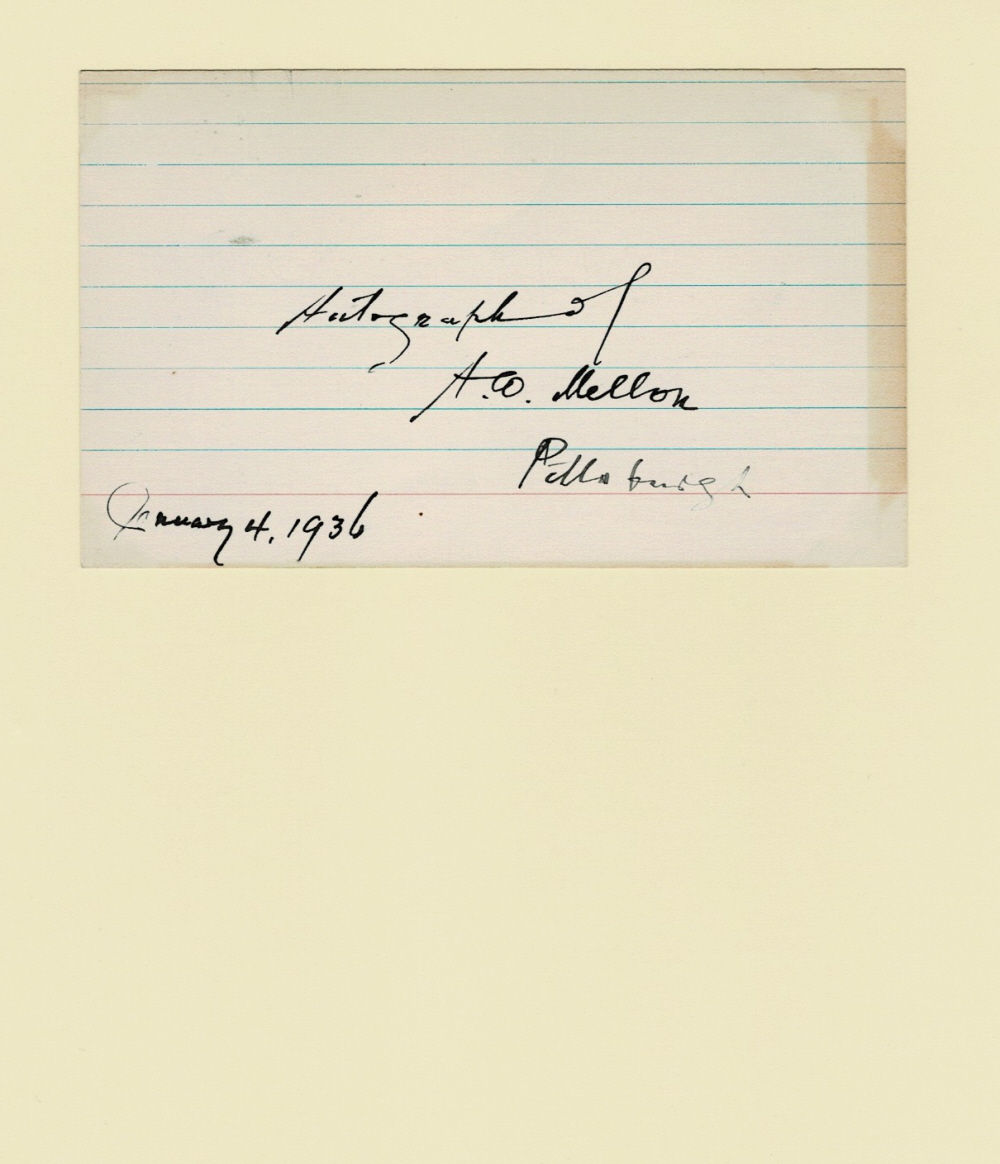 Autograph of
A.W. Mellon
Pittsburgh
January 4, 1936